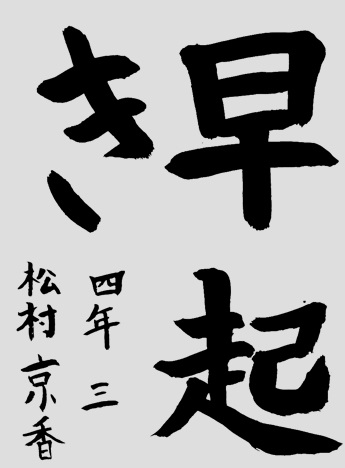 早起
き
四年 三
松村京香